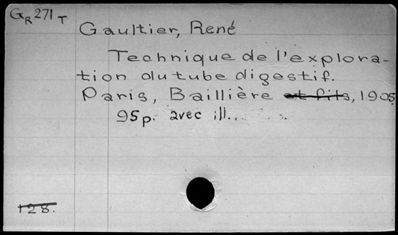 GR271T
Gaultier, René
Technique de l'explora-
tion du tube digestif.
Paris, Baillière et fils, 1905
95p. avec ill.
128.